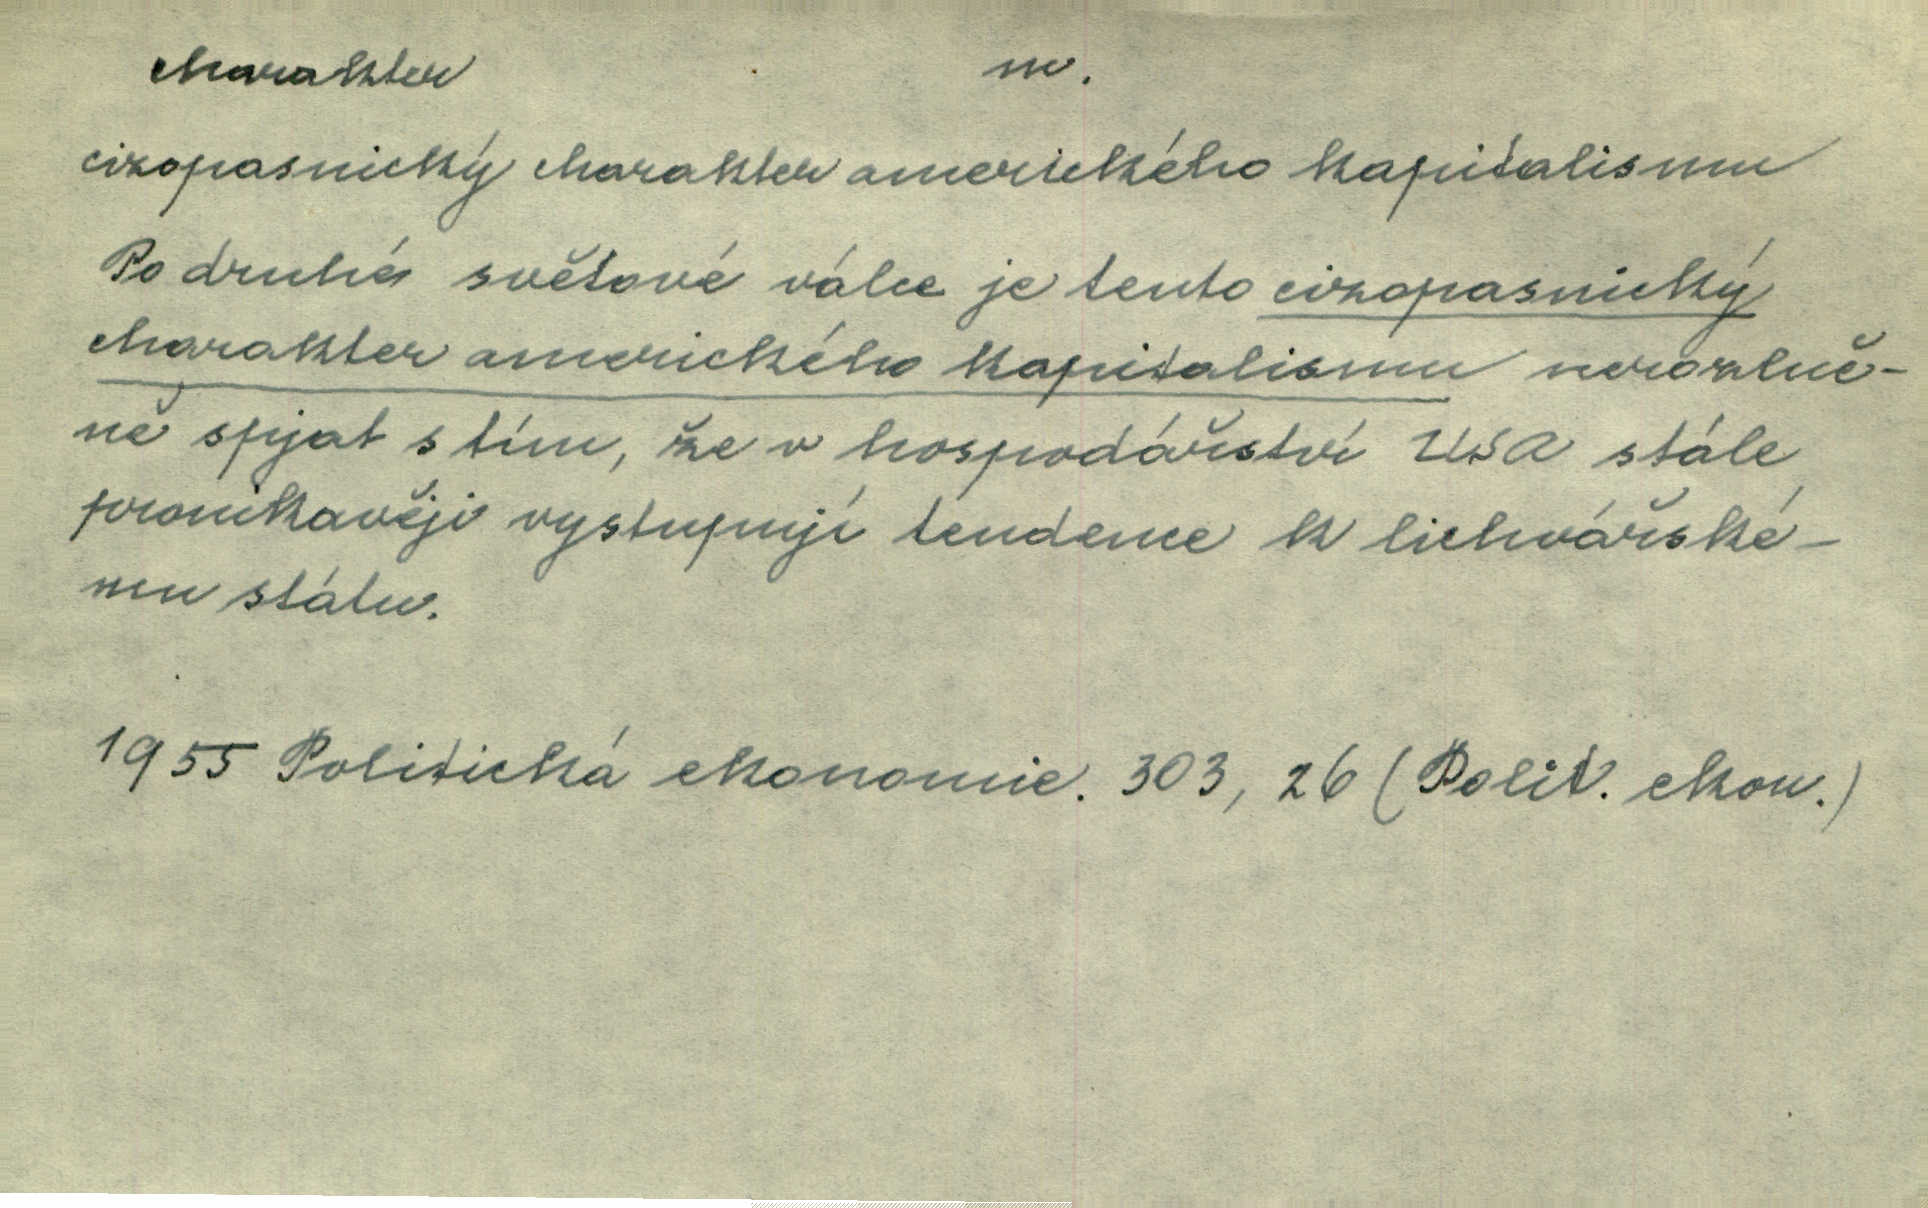 charakter m.
cizopasnický charakter amerického kapitalismu
Po druhé světové válce je tento cizopasnický
charakter amerického kapitalismu nerozluč-
ně spjat s tím, že v hospodářství USA stále
pronikavěji vystupují tendence k lichvářské-
mu státu.
1955 Politická ekonomie. 303, 26 (Polit. ekon.)